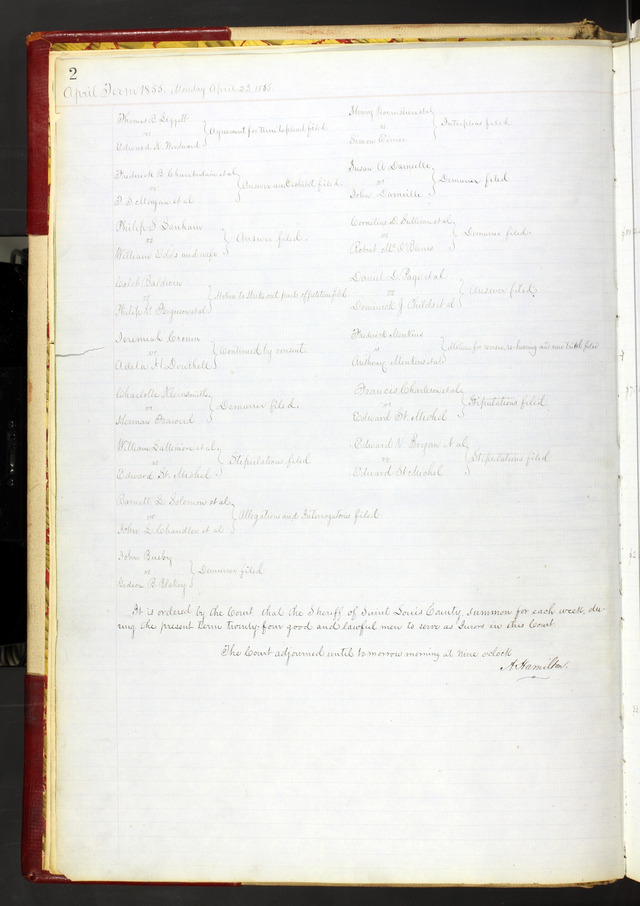 2
April Term 1855. Monday April 23. 1855.
Thomas B. Leggett
vs
Edward H. } Agreement for time to plead filed
Frederick B. Chamberlain et al
vs
P. S. Morgan et al } Answer and Exhibit filed.
Philip S. Lanham
vs
William Edds and wife } Answer filed.
Caleb Baldwin
vs
Philip H. Ferguson et al } Motion to Strike out parts of petition filed
Jeremiah Cronin
vs
Adel a H. Douthett } Continued by consent.
Charlotte
vs
Herman } Demurrer filed.
William Lattimore et al
vs
Edward St. Mishel } Stipulations filed
Barnett L. Solomon et al
vs
John L. Chandler et al } Allegations and Interrogatories filed
John Busby
vs
Gideon B. } Demurrer filed
Henry et al
vs
Simon } Interpleas filed
Susan A Darneille
vs
John Darneille } Demurrer filed
Cornelius D. Sullivan et al
vs
Robert Mc. O'Blenis } Demurrer filed.
Daniel D. Page et al
vs
Dominick J. Childs et al } Answer filed.
Frederick Menkins
vs
Anthony Menkins et al } Motion for review, re-hearing and new trial filed
Francis Charleton et al
vs
Edward St. Mishel } Stipulations filed
Edward N. Bryan et al
vs
Edward St Mishel } Stipulations filed
It is ordered by the Court that the Sheriff of Saint Louis County, summon for each week, du-
ring the present term twenty-four good and lawful men to serve as Jurors in this Court
The Court adjourned until tomorrow morning at nine o'clock
A. Hamilton.